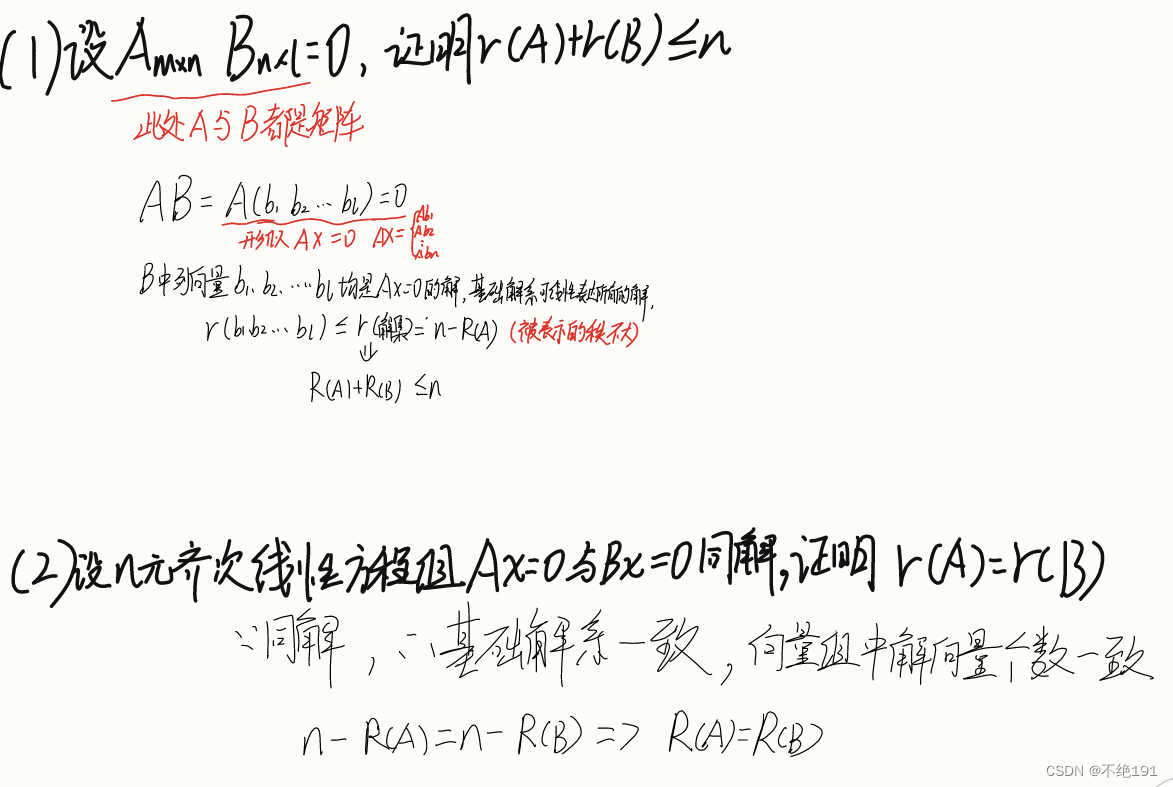 (1)设Am×n Bn×l=0,证明r(A)+r(B)≤n
此处A与B都是矩阵
AB=A(b1 b2…bl)=0
形似AX=0 AX={Ab1
Ab2
⋮
Abn
B中列向量b1,b2,…,bl均是Ax=0的解,基础解系可线性表达所有的解,
r(b1b2…bl)≤r(解集)=n-R(A) (被表示的秩不大)
⇓
R(A)+R(B)≤n
(2)设n元齐次线性方程组Ax=0与Bx=0同解,证明r(A)=r(B)
∵同解,∴基础解系一致,向量组中解向量个数一致
n-R(A)=n-R(B)=>R(A)=R(B)
CSDN @不绝191